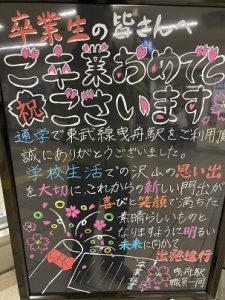 卒業生の皆さんへ
ご卒業おめでとう
祝 ございます。
通学で東武線曳舟駅をご利用頂
誠にありがとうございました。
学校生活での沢山の思い出
を大切に、これからの新しい門出が
喜びと笑顔で満ちた
素晴らしいものと
なりますように明るい
未来に向かて
出発進行
曳舟駅
職員一同
卒業